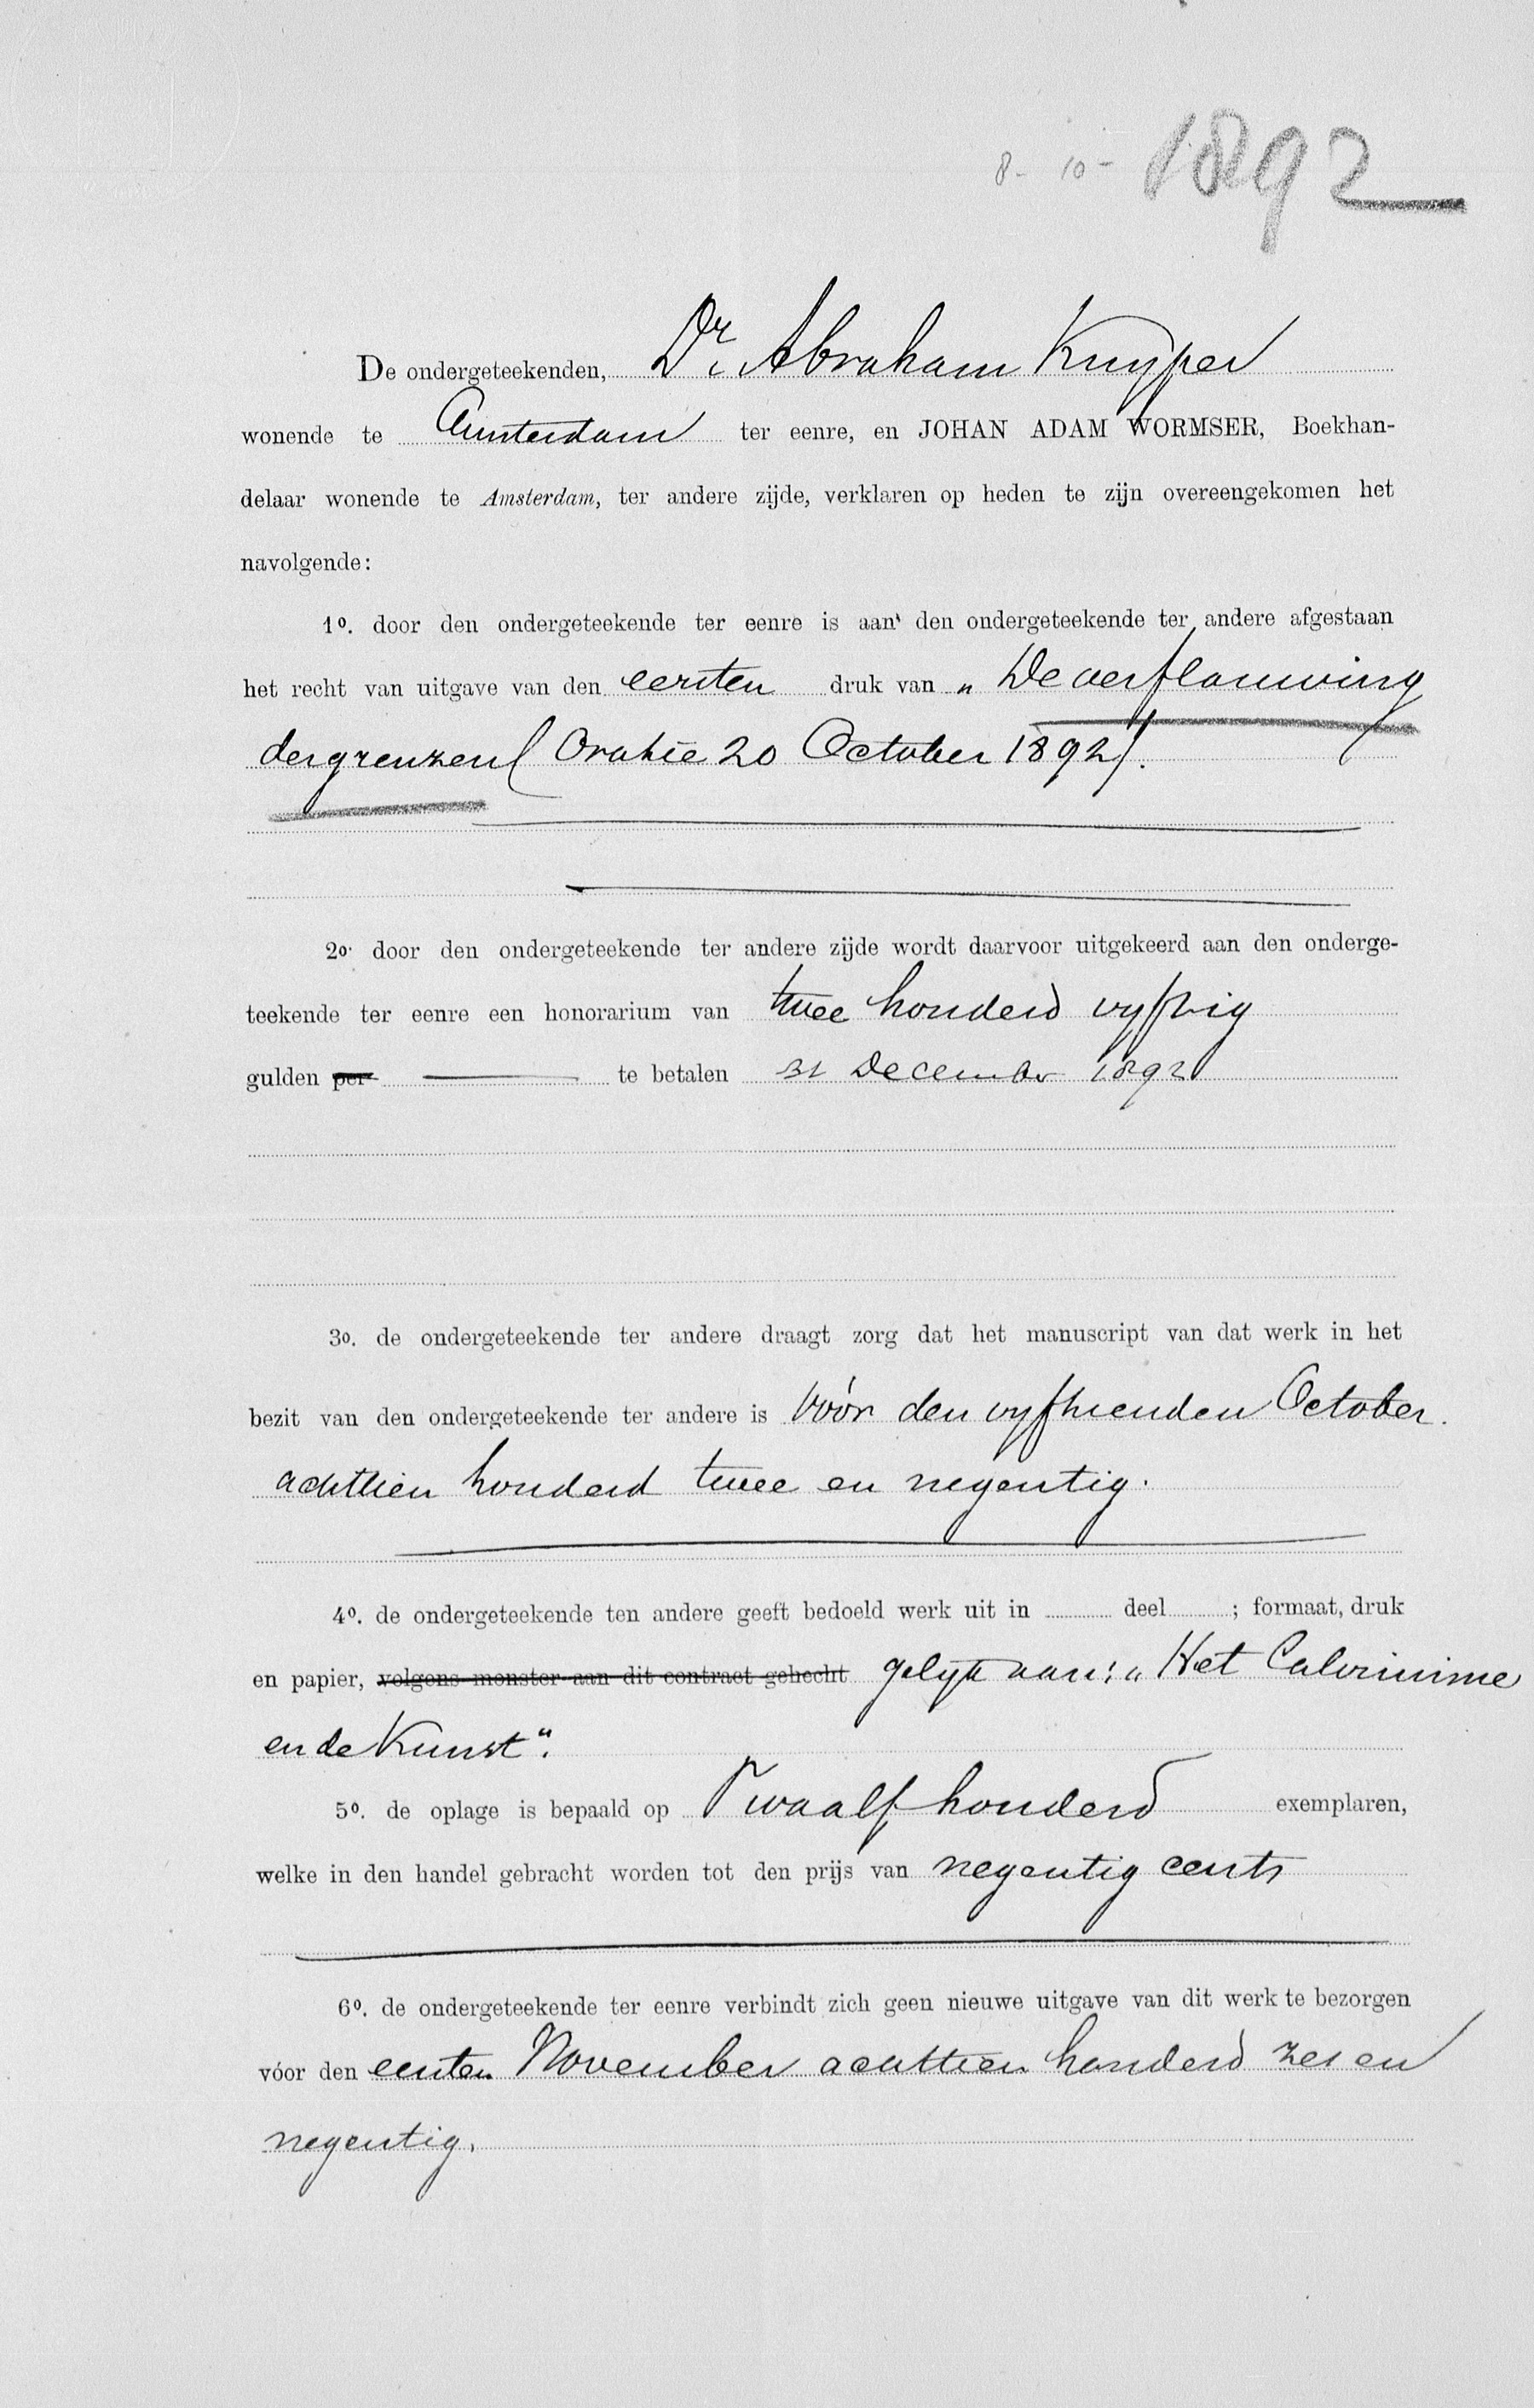 8 - 10 - 1892
De ondergeteekenden, Dr. Abraham Kuyper
wonende te Amsterdam ter eenre, en JOHAN ADAM WORMSER, Boekhan-
delaar wonende te Amsterdam, ter andere zijde, verklaren op heden te zijn overeengekomen het
navolgende:
1o. door den ondergeteekende ter eenre is aan den ondergeteekende ter andere afgestaan
het recht van uitgave van den eersten druk van „ De verflauwing
der grenzen ( Oratie 20 October 1892).
2o. door den ondergeteekende ter andere zijde wordt daarvoor uitgekeerd aan den onderge-
teekende ter eenre een honorarium van twee honderd vyftig
gulden per te betalen 31 December 1892
3o. de ondergeteekende ter andere draagt zorg dat het manuscript van dat werk in het
bezit van den ondergeteekende ter andere is vóór den vyftienden October.
achttien honderd twee en negentig.
4o. de ondergeteekende ten andere geeft bedoeld werk uit in deel ; formaat, druk
en papier, volgens monster aan dit contract gehecht gelyk aan: „Het Calvinisme
en de Kunst".
5o. de oplage is bepaald op Twaalf honderd exemplaren,
welke in den handel gebracht worden tot den prijs van negentig cents
6o. de ondergeteekende ter eenre verbindt zich geen nieuwe uitgave van dit werk te bezorgen
vóor den eersten November achttien honderd zes en
negentig.